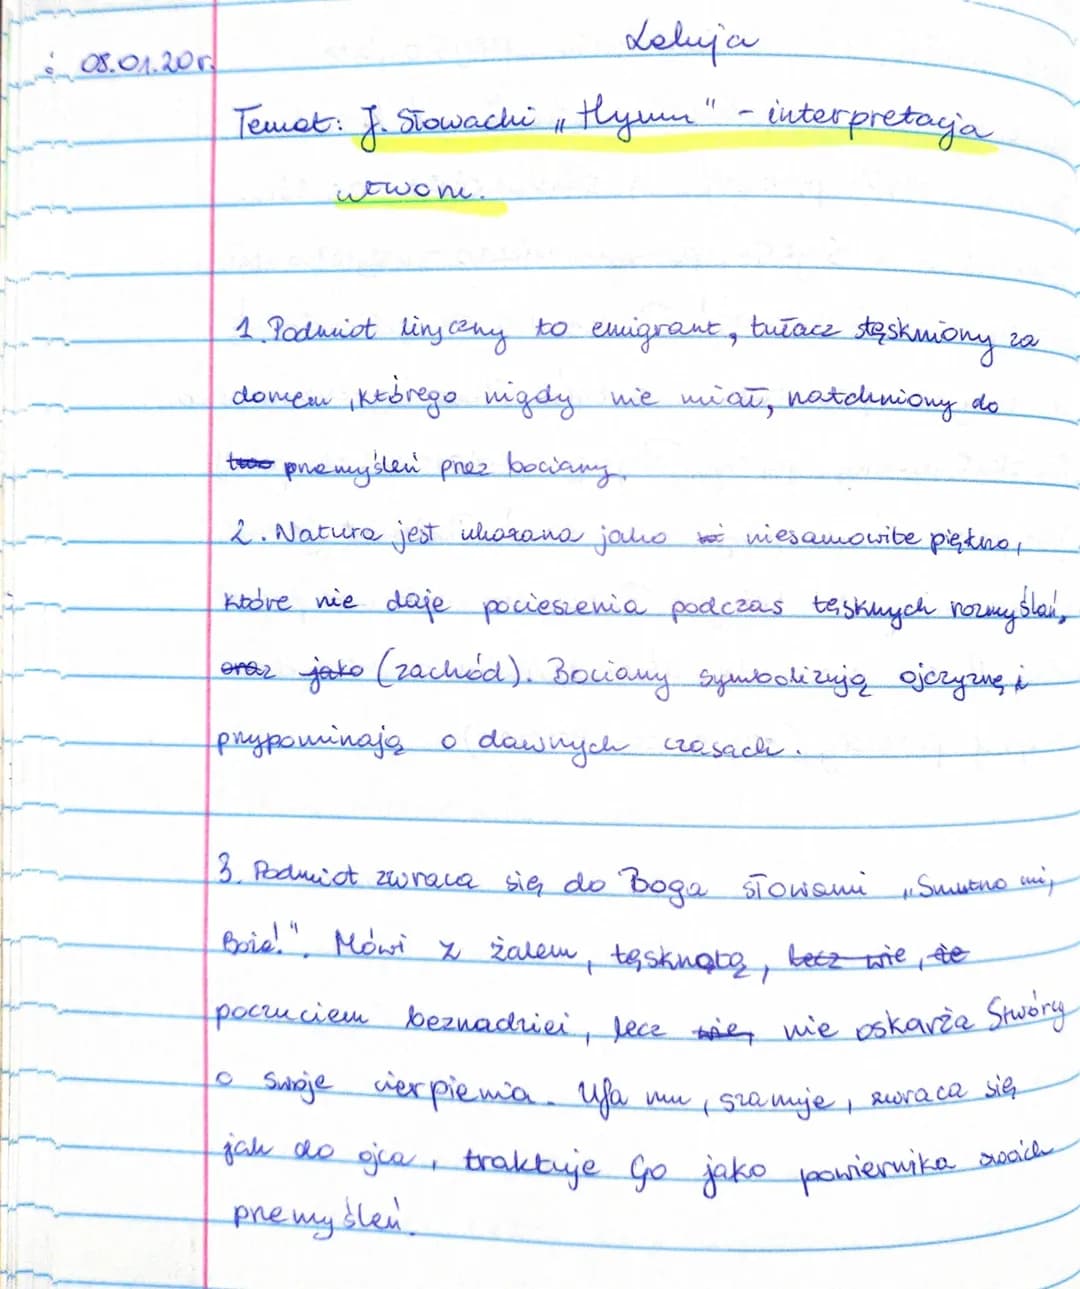 Lekcja
08.01.20r.
Temat: J. Słowacki „Hymn" - interpretacja
utworu.
1. Podmiot liryczny to emigrant, tułacz stęskniony za
domem, którego nigdy nie miał, natchniony do
two przemyśleń przez bociany.
2. Natura jest ukazana jako niesamowite piękno,
które nie daje pocieszenia podczas tęsknych rozmyślań,
oraz jako (zachód). Bociany symbolizują ojczyznę i
przypominają o dawnych czasach.
3. Podmiot zwraca się do Boga słowami „Smutno mi,
Boże!". Mówi z żalem, tęsknotą, lecz wie, że
poczuciem beznadziei, lecz nie oskarża Stwórcy
o swoje cierpienia. Ufa mu, szanuje, zwraca się
jak do ojca, traktuje Go jako powiernika swoich
przemyśleń.